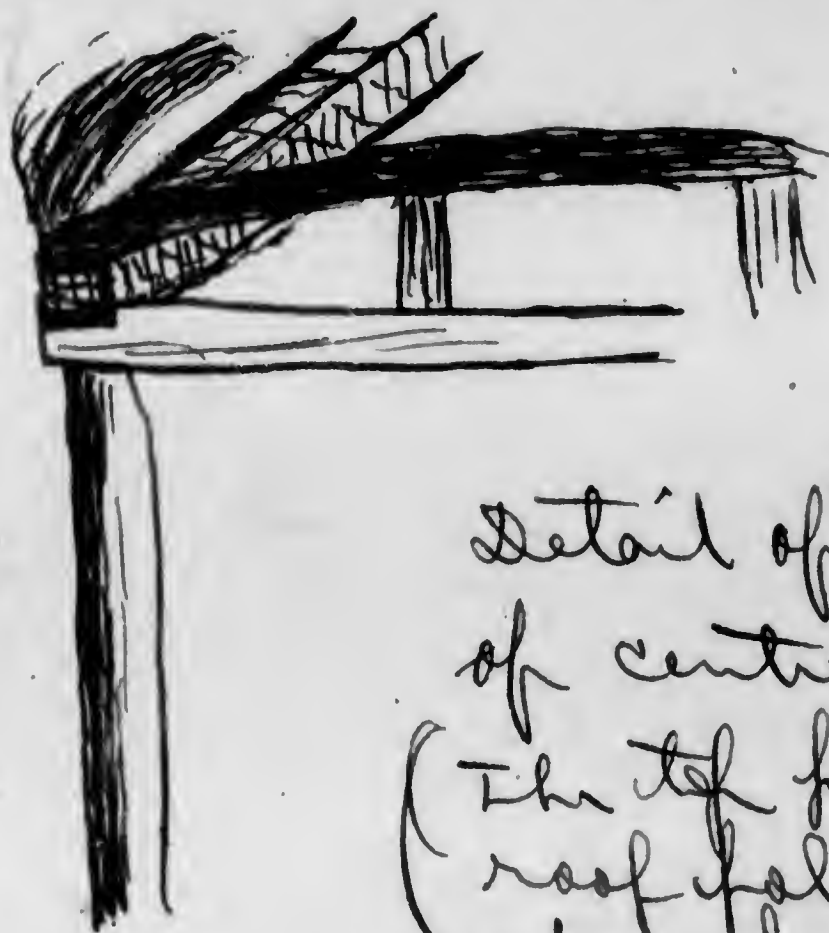 Detail of
of centr
(The top f
roof pol